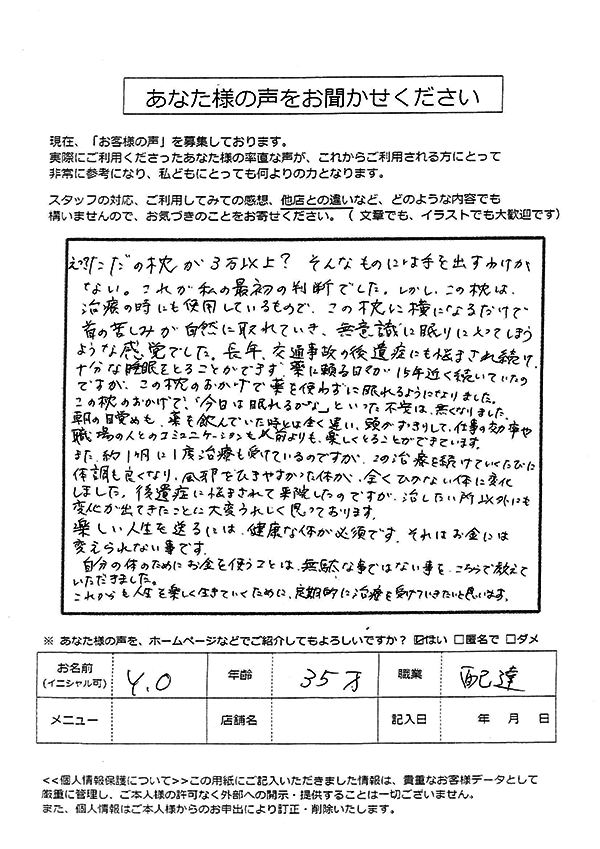 あなた様の声をお聞かせください
現在、「お客様の声」を募集しております。
実際にご利用くださったあなた様の率直な声が、これからご利用される方にとって
非常に参考になり、私どもにとっても何よりの力となります。
スタッフの対応、ご利用してみての感想、他店との違いなど、どのような内容でも
構いませんので、お気づきのことをお寄せください。（ 文章でも、イラストでも大歓迎です）
えっ!?ただの枕が3万以上？ そんなものには手を出すわけが
ない。これが私の最初の判断でした。しかし、この枕は、
治療の時にも使用しているもので、この枕に横になるだけで
首の苦しみが自然に取れていき、無意識に眠りに入ってしまう
ような感覚でした。長年、交通事故の後遺症にも悩まされ続け、
十分な睡眠をとることができず、薬に頼る日々が15年近く続いていたの
ですが、この枕のおかげで薬を使わずに眠れるようになりました。
この枕のおかげで、「今日は眠れるかな」といった不安は、無くなりました。
朝の目覚めも、薬を飲んでいた時とは全く違い、頭がすっきりして、仕事の効率や
職場の人とのコミュニケーションも以前よりも、楽しくとることができています。
また、約1ヶ月に1度治療も受けているのですが、この治療を続けていくたびに
体調も良くなり、風邪をひきやすかった体が、全くひかない体に変化
しました。後遺症に悩まされて来院したのですが、治したい所以外にも
変化が出てきたことに大変うれしく思っております。
楽しい人生を送るには、健康な体が必須です。それはお金には
変えられない事です。
自分の体のためにお金を使うことは、無駄な事ではない事を、こちらで教えて
いただきました。
これからも人生を楽しく生きていくために、定期的に治療を受けていきたいと思います。
※ あなた様の声を、ホームページなどでご紹介してもよろしいですか？ ☑はい □匿名で □ダメ
お名前 Y.O 年齢 35才 職業 配達
(イニシャル可)
メニュー 店舗名 記入日 年 月 日
<<個人情報保護について>>この用紙にご記入いただきました情報は、貴重なお客様データとして
厳重に管理し、ご本人様の許可なく外部への開示・提供することは一切ございません。
また、個人情報はご本人様からのお申出により訂正・削除いたします。